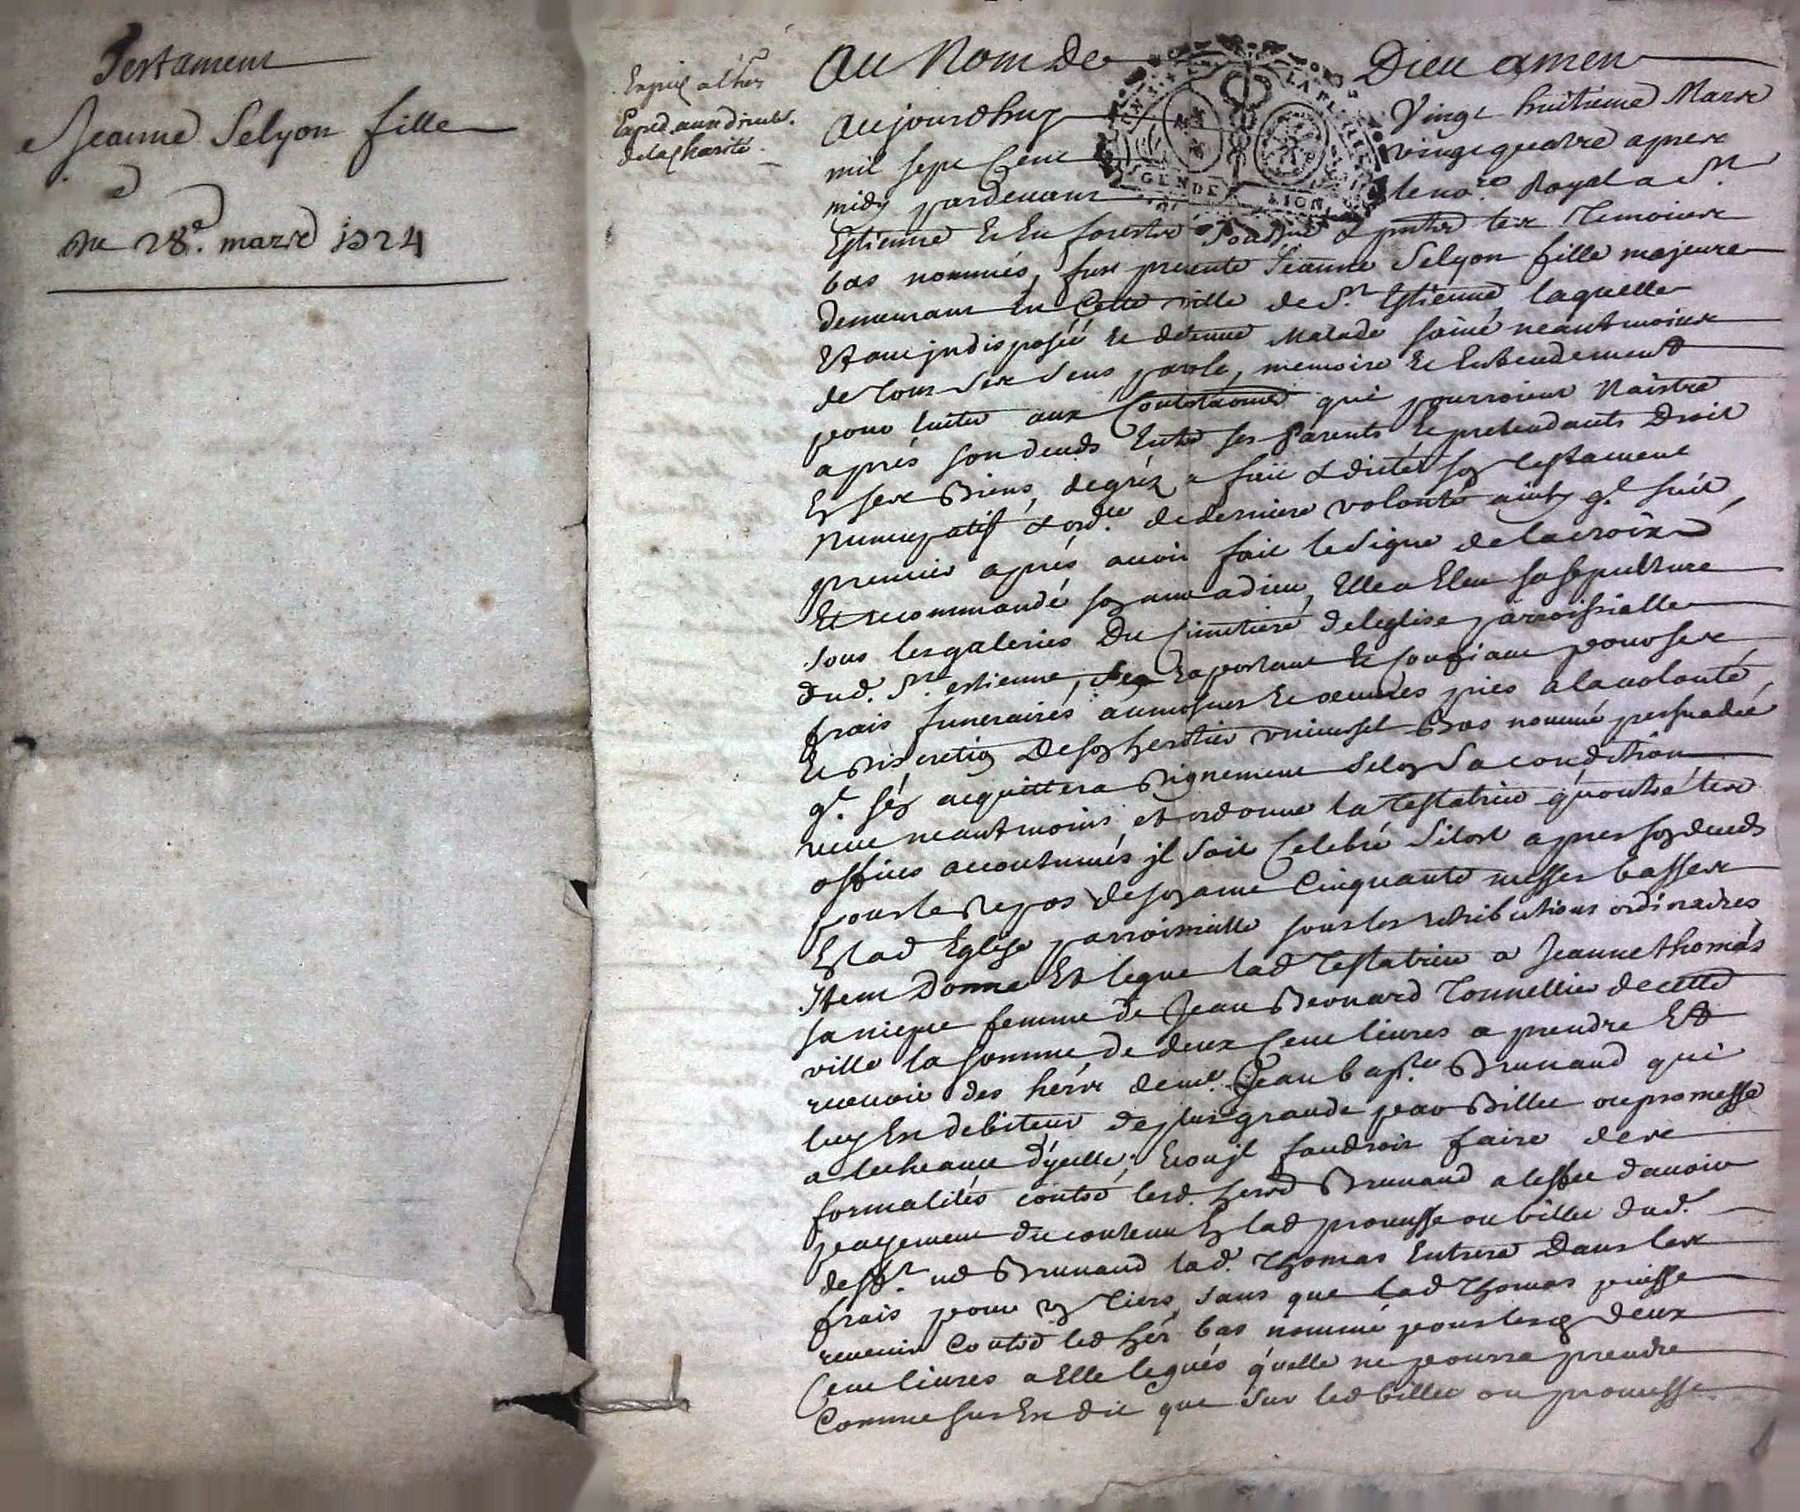 Testament
Jeanne Selyon fille
Du 28e. mars 1724
Exped aux direct.
de la Charité
Au Nom de Dieu amen
Aujourdhuy Vingt huitieme Mars
mil sept Cent vingt quatre apres
midy pardevant le nore. Royal a St
Estienne Et En forestz Soussne & pnts les Temoins
bas nommés, fust presente Jeanne Selyon fille majeure
demeurant En Cette ville de St. Estienne, laquelle
Etant jndisposéé Et detenue Malade saine neantmoins
de tous ses sens parole, memoire Et Entendement
pour Eviter aux Contestaons qui pourroient Naistre
aprés son deceds Entre ses Parents Et pretendants Droit
En ses Biens, de gréz a fait & dicté son testament
Nuncupatif & ordce. de derniere volonté ainsy ql. suit
premier aprés avoir fait le signe de la croix
Et recommandé son ame a dieu, Elle a Eleu sa sepulture
sous les galeries Du Cimetiere de leglise parroissialle
dud. St. estienne, raportant Et Confiant pour ses
frais funeraires aumosnes Et oeuvres pies a la volonté
Et Discretion De son heritier universel Bas nommé persuadéé
ql. sen acquittera Dignement selon sa condition
veut neantmoins et ordonne la Testatrice qu'outre les
offices accoutumés jl soit Celebré Sitost apres son deceds
pour le Repos de son ame Cinquante messes basses
En lad Eglise parroissialle sous les retributions ordinaires
Item Donne Et legue lad Testatrice a Jeanne thomas
sa niepce femme de Jean Beonard Tonnellier de cette
ville la somme de deux Cent livres a prendre Et
recevoir des herirs de mr. Jean bapte. Brunaud qui
luy Est debiteur de plus grande par Billet ou promesse
a lecheance d'ycelle; Et ou jl faudroit faire des
formalités contre lesd. herrs Brunaud a leffet davoir
payement du contenu En lad promesse ou billet dud.
desft. sr Brunaud lad. Thomas Entrera Dans les
frais pour un tiers, sans que lad Thomas puisse
revenir Contre led her bas nommé pour lesd deux
Cent livres a Elle legués qu'elle ne pourra prendre
Comme sus Est dit que sur led billet ou promesse